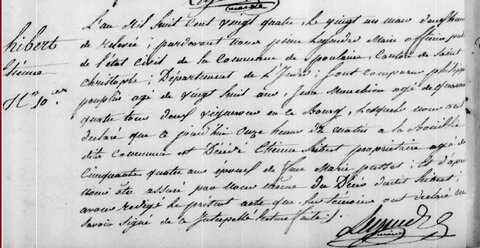 hibert
étienne
N° 10
L'an mil huit cent vingt quatre, le vingt un mars
de relevée; pardevant nous Legendre Maire officier
de l'état Civil de la Commune de Poulaine, Canton de Saint
Christophe; Département de L'Indre; sont comparus philippe
poupliu agé de vingt huit ans, Jean agé de
quatre tous deux vignerons en le Bourg, Lesquels nous ont
déclaré que ce jourd'hui onze heures du matin a la
dite commune est Décédé Etienne hibert propriétaire agé de
Cinquante quatre ans époux de Marie et d'après
nous être assuré par nous même du Décès dudit hibert;
avons redigé le présent acte que les témoins ont déclaré ne
savoir Signé de ce Interpellé lecture faite.
Legendre